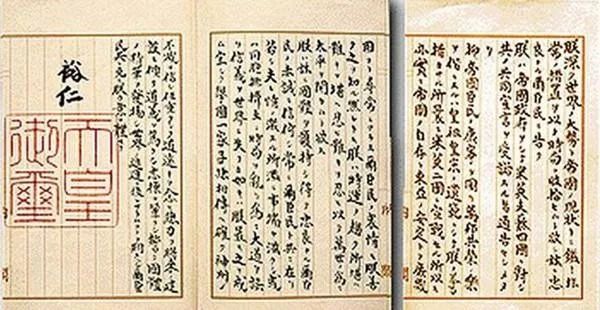 朕深ク世界ノ大勢ト帝國ノ現狀トニ鑑ミ非
常ノ措置ヲ以テ時局ヲ收拾セムト欲シ茲ニ忠
良ナル爾臣民ニ告ク
朕ハ帝國政府ヲシテ米英支蘇四國ニ對シ
其ノ共同宣言ヲ受諾スル旨通告セシメタリ
抑〻帝國臣民ノ康寧ヲ圖リ萬邦共榮ノ樂
ヲ偕ニスルハ皇祖皇宗ノ遺範ニシテ朕ノ拳〻
措カサル所曩ニ米英二國ニ宣戰セル所以モ
亦實ニ帝國ノ自存ト東亞ノ安定トヲ庶幾
固ヨリ尋常ニアラス爾臣民ノ衷情モ朕善
ク之ヲ知ル然レトモ朕ハ時運ノ趨ク所堪ヘ
難キヲ堪ヘ忍ヒ難キヲ忍ヒ以テ萬世ノ爲ニ
太平ヲ開カムト欲ス
朕ハ茲ニ國體ヲ護持シ得テ忠良ナル爾臣
民ノ赤誠ニ信倚シ常ニ爾臣民ト共ニ在リ
若シ夫レ情ノ激スル所濫ニ事端ヲ滋クシ或ハ
同胞排擠互ニ時局ヲ亂リ爲ニ大道ヲ誤
リ信義ヲ世界ニ失フカ如キハ朕最モ之ヲ戒
ム宜シク擧國一家子孫相傳ヘ確ク神州ノ
不滅ヲ信シ任重クシテ道遠キヲ念ヒ總力ヲ將來ノ建
設ニ傾ケ道義ヲ篤クシ志操ヲ鞏クシ誓テ國體
ノ精華ヲ發揚シ世界ノ進運ニ後レサラムコトヲ期スヘシ爾臣
民其レ克ク朕カ意ヲ體セヨ
裕仁
天皇
御璽